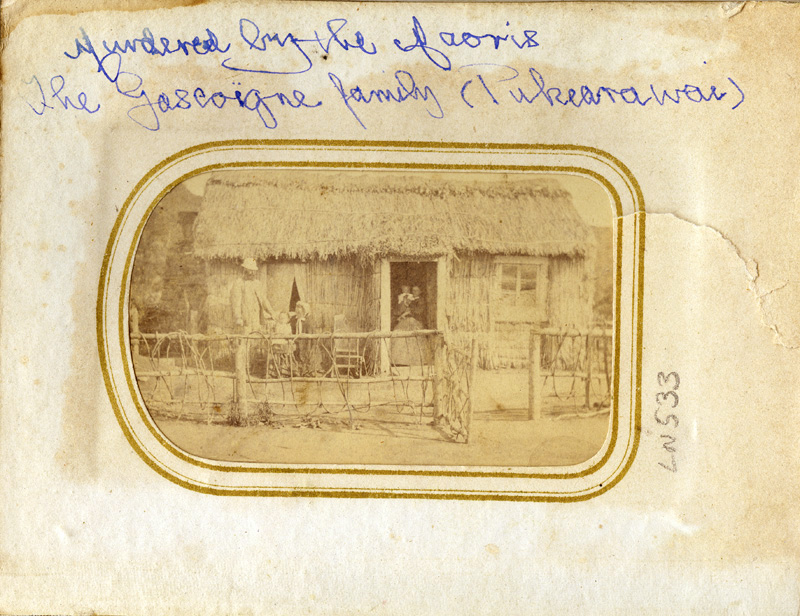 Murdered by the Maoris
The Gascoigne family (Pukearawai)
LN533